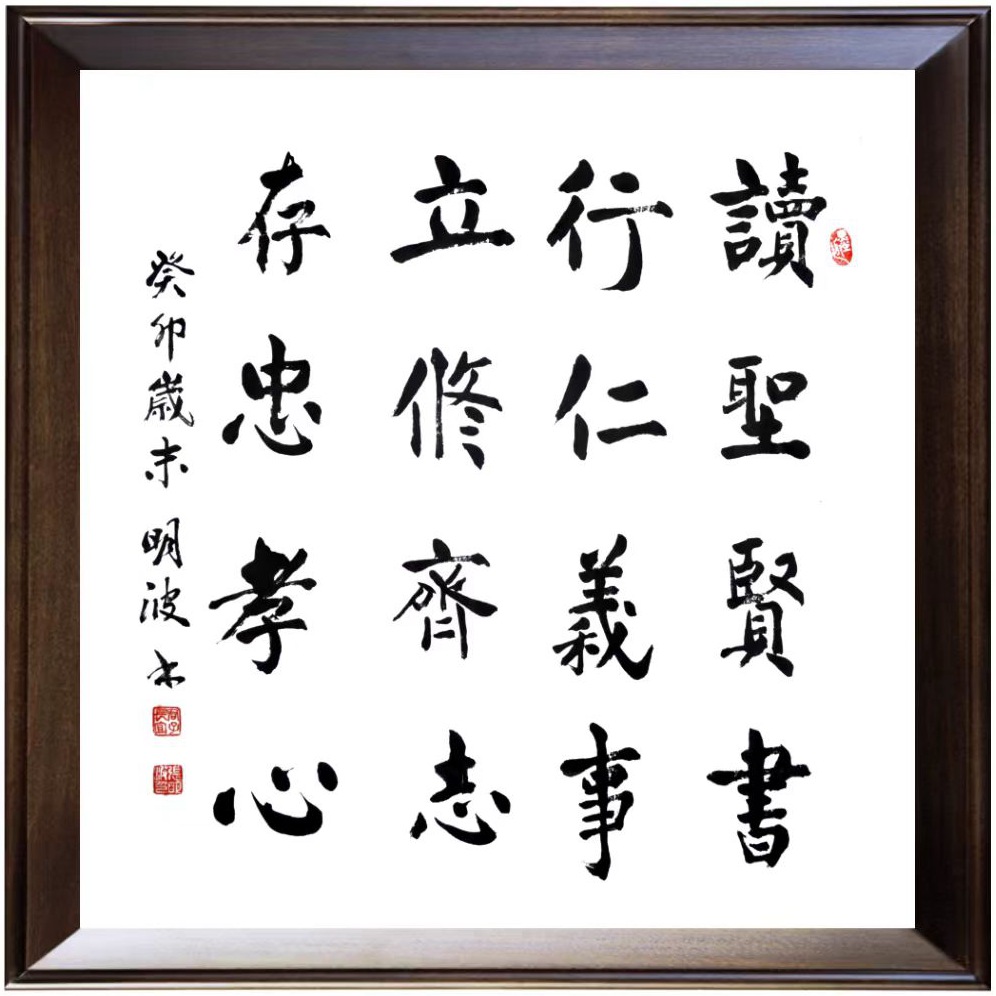 讀聖賢書
行仁義事
立修齊志
存忠孝心
癸卯歲末 明波书